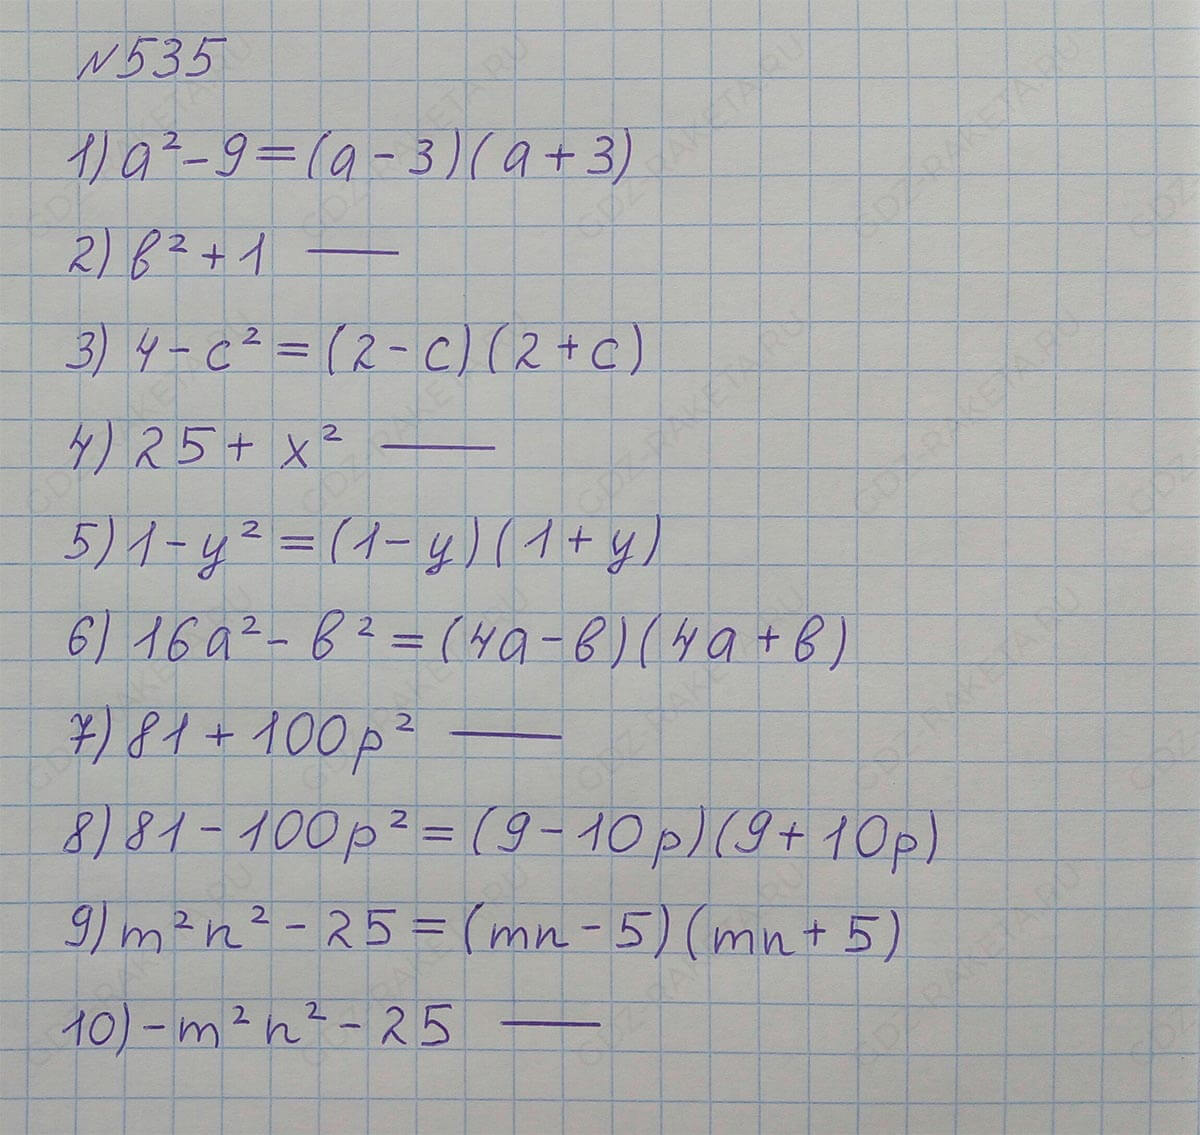 №535
1) a² - 9 = (a - 3)(a + 3)
2) в² + 1 —
3) 4 - c² = (2 - c)(2 + c)
4) 25 + x² —
5) 1 - y² = (1 - y)(1 + y)
6) 16a² - в² = (4a - в)(4a + в)
7) 81 + 100p² —
8) 81 - 100p² = (9 - 10p)(9 + 10p)
9) m²n² - 25 = (mn - 5)(mn + 5)
10) -m²n² - 25 —
GDZ-RAKETA.RU